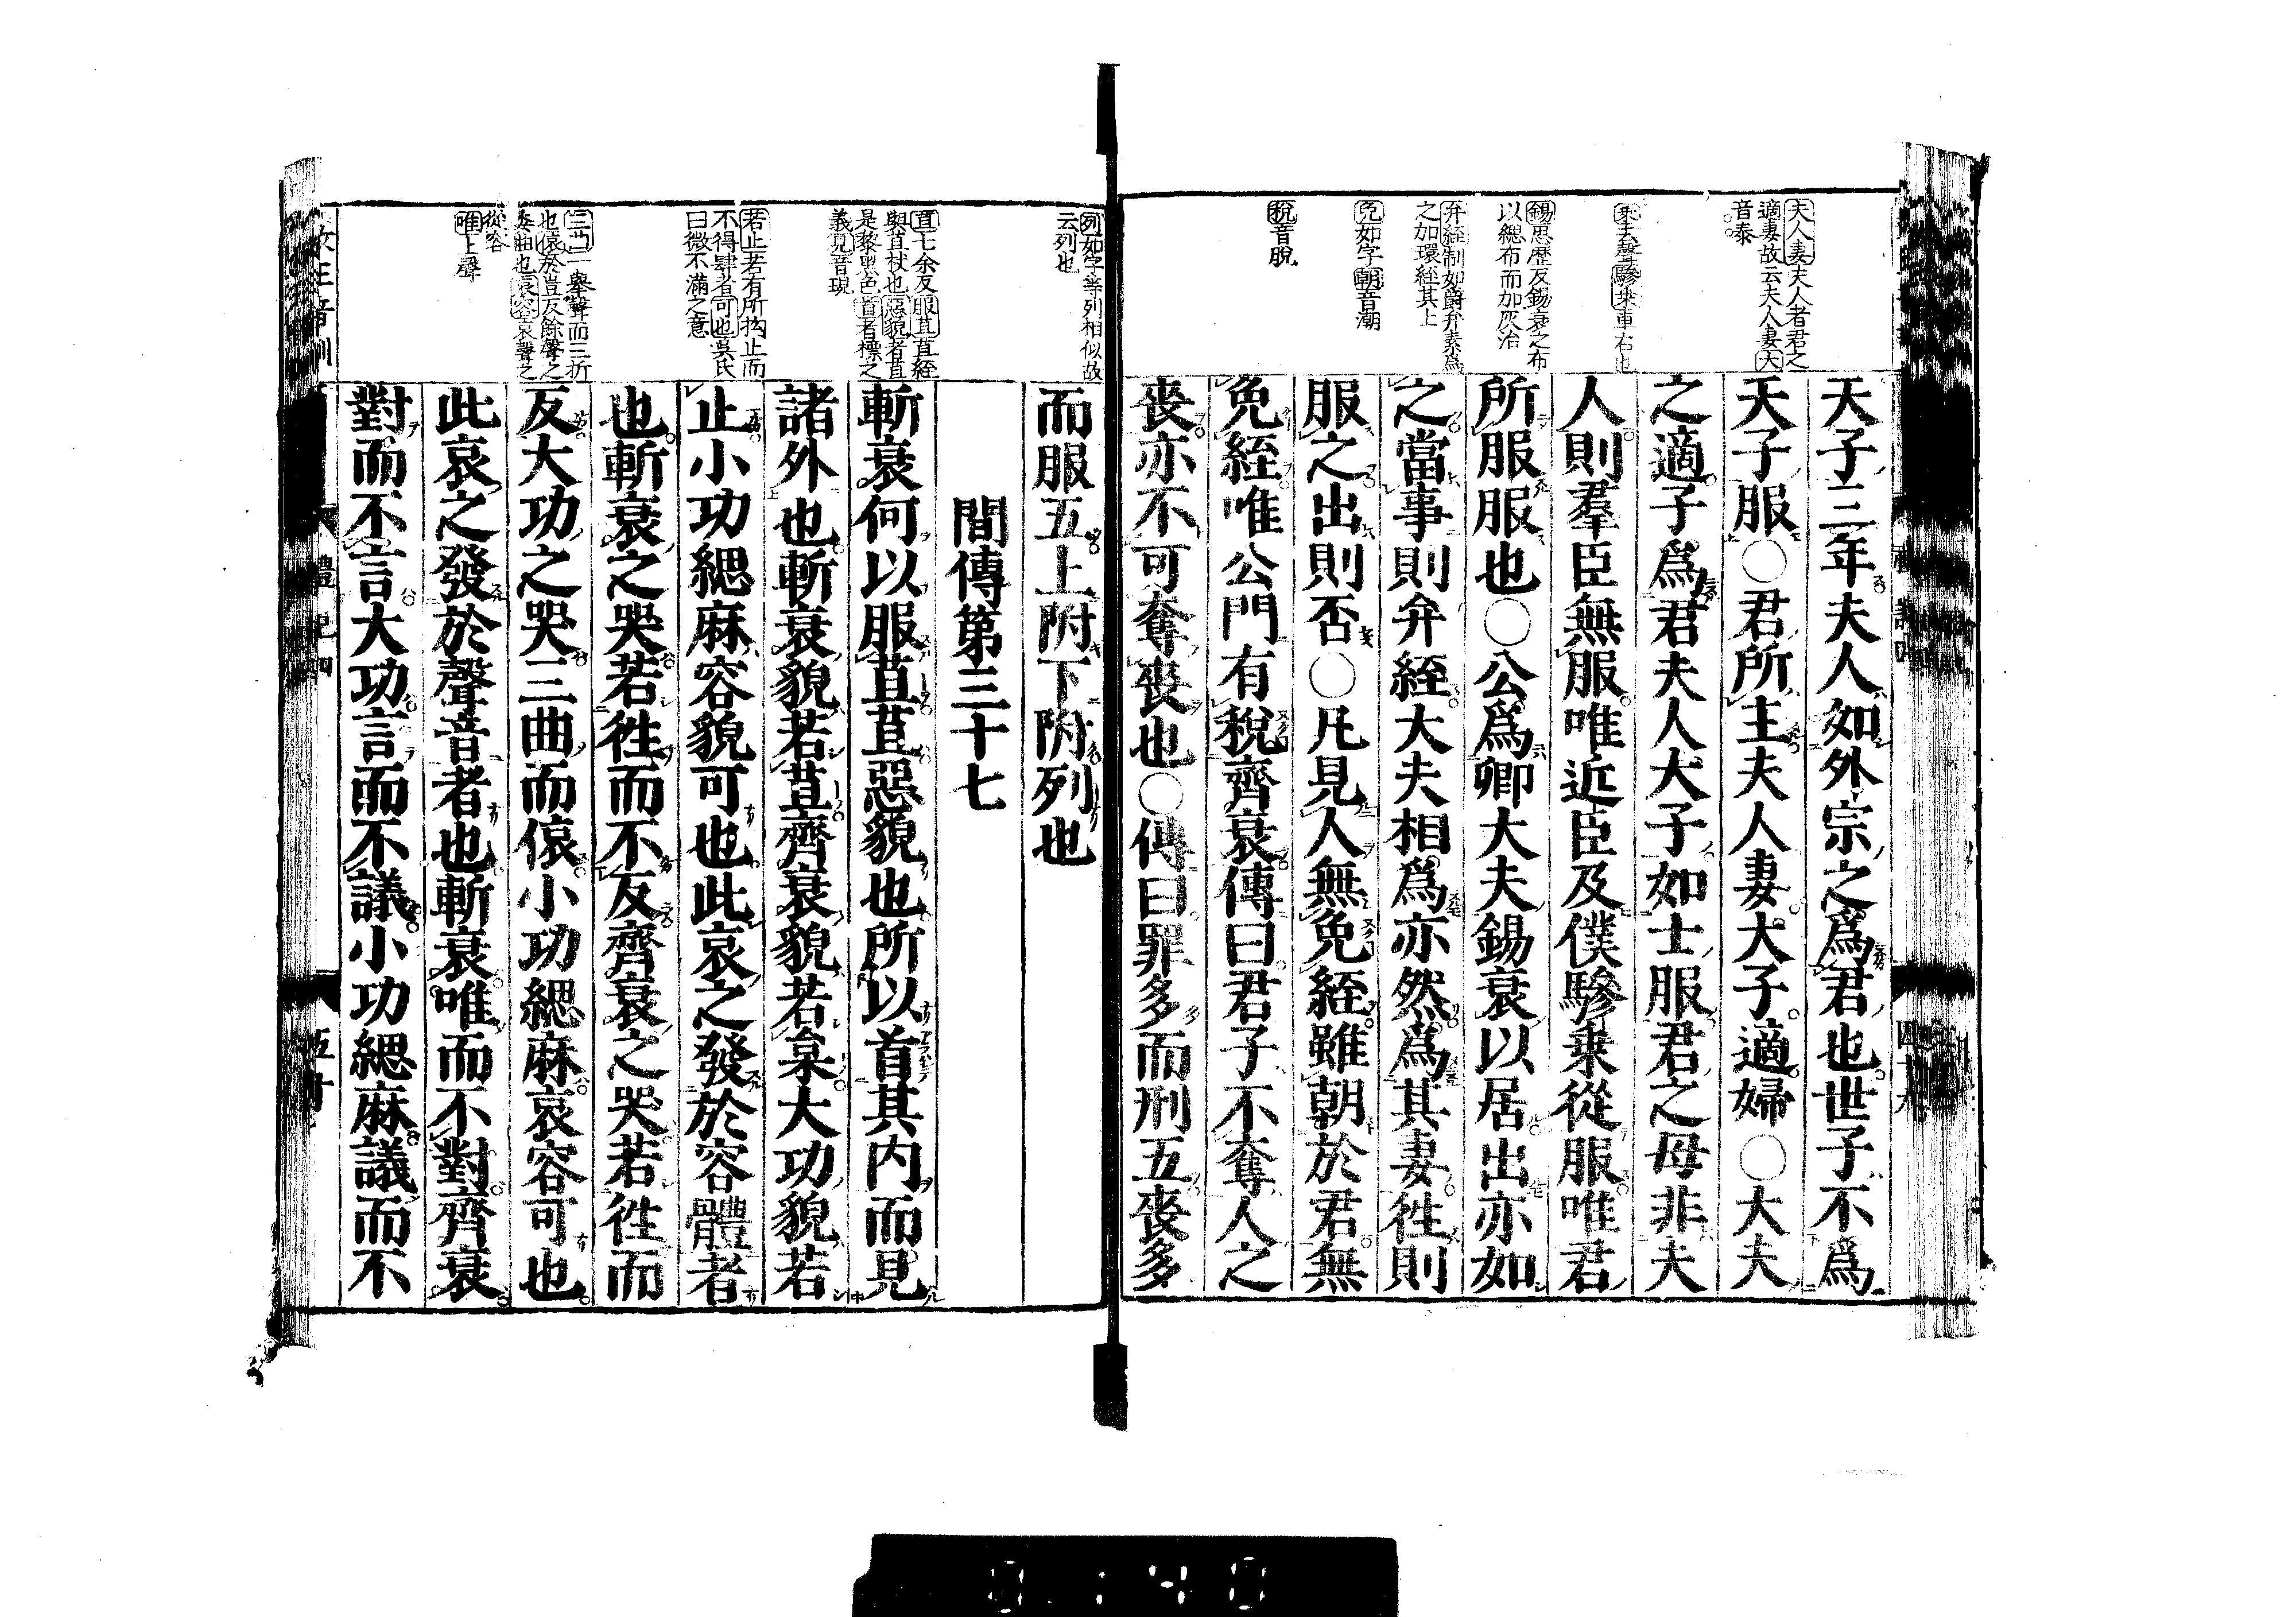 夫人妻夫人者君之
適妻故云夫人妻大
音泰
乘去聲驂乗車右也
錫思歴反錫衰之布
以緦布而加灰治
弁絰制如爵弁素爲
之加環絰其上
免如字朝音潮
稅音脫
天子三年夫人如外宗之爲君也世子不爲
天子服○君所主夫人妻大子適婦○大夫
之適子爲君夫人大子如士服君之母非夫
人則羣臣無服唯近臣及僕驂乗從服唯君
所服服也○公爲卿大夫錫衰以居出亦如
之當事則弁絰大夫相爲亦然爲其妻徃則
服之出則否○凡見人無免絰雖朝於君無
免絰唯公門有稅齊衰傳曰君子不奪人之
喪亦不可奪喪也○傳曰罪多而刑五喪多
列如字等列相似故
云列也
苴七余反服苴苴絰
與苴杖也惡貌者苴
是黎黒色首者標之
義見音現
若止若有所拘止而
不得肆者可也吳氏
曰微不滿之意
三曲一舉聲而三折
也偯於豈反餘聲之
委曲也哀容哀聲之
從容
唯上聲
而服五上附下附列也
間傳第三十七
斬衰何以服苴苴惡貌也所以首其内而見
諸外也斬衰貌若苴齊衰貌若枲大功貌若
止小功緦麻容貌可也此哀之發於容體者
也斬衰之哭若徃而不反齊衰之哭若徃而
反大功之哭三曲而偯小功緦麻哀容可也
此哀之發於聲音者也斬衰唯而不對齊衰
對而不言大功言而不議小功緦麻議而不
禮記四